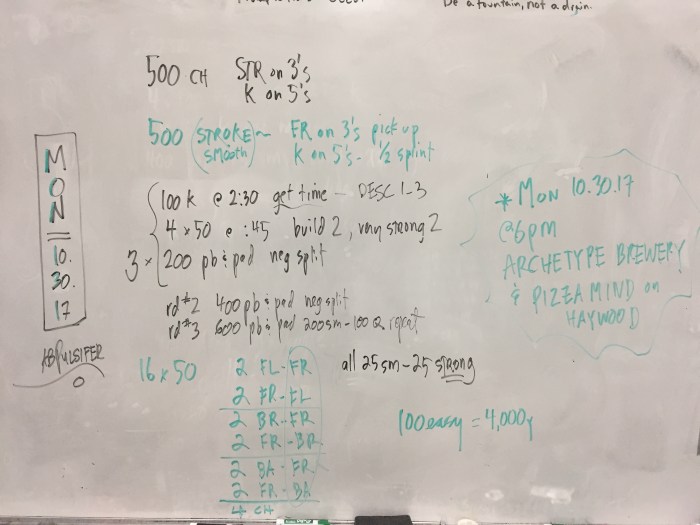 Be a fountain, not a drain.
500 CH STR on 3's
K on 5's
500 (STROKE)~ FR on 3's pick up
smooth K on 5's - 1/2 sprint
M
O
N
10.
30.
17
KBPULSIFER
3 x
100 k @ 2:30 get time - DESC 1-3
4 x 50 @ :45 build 2, very strong 2
200 pb & pad neg split
rd #2 400 pb & pad neg split
rd #3 600 pb & pad 200sm - 100 repeat
16 x 50
2 FL-FR all 25sm-25 strong
2 FR-FL
2 BR-FR
2 FR-BR
2 BA-FR
2 FR-BA
4 CH
100 easy = 4,000y
* MON 10.30.17
@6pm
ARCHETYPE BREWERY
& PIZZA MIND on
HAYWOOD